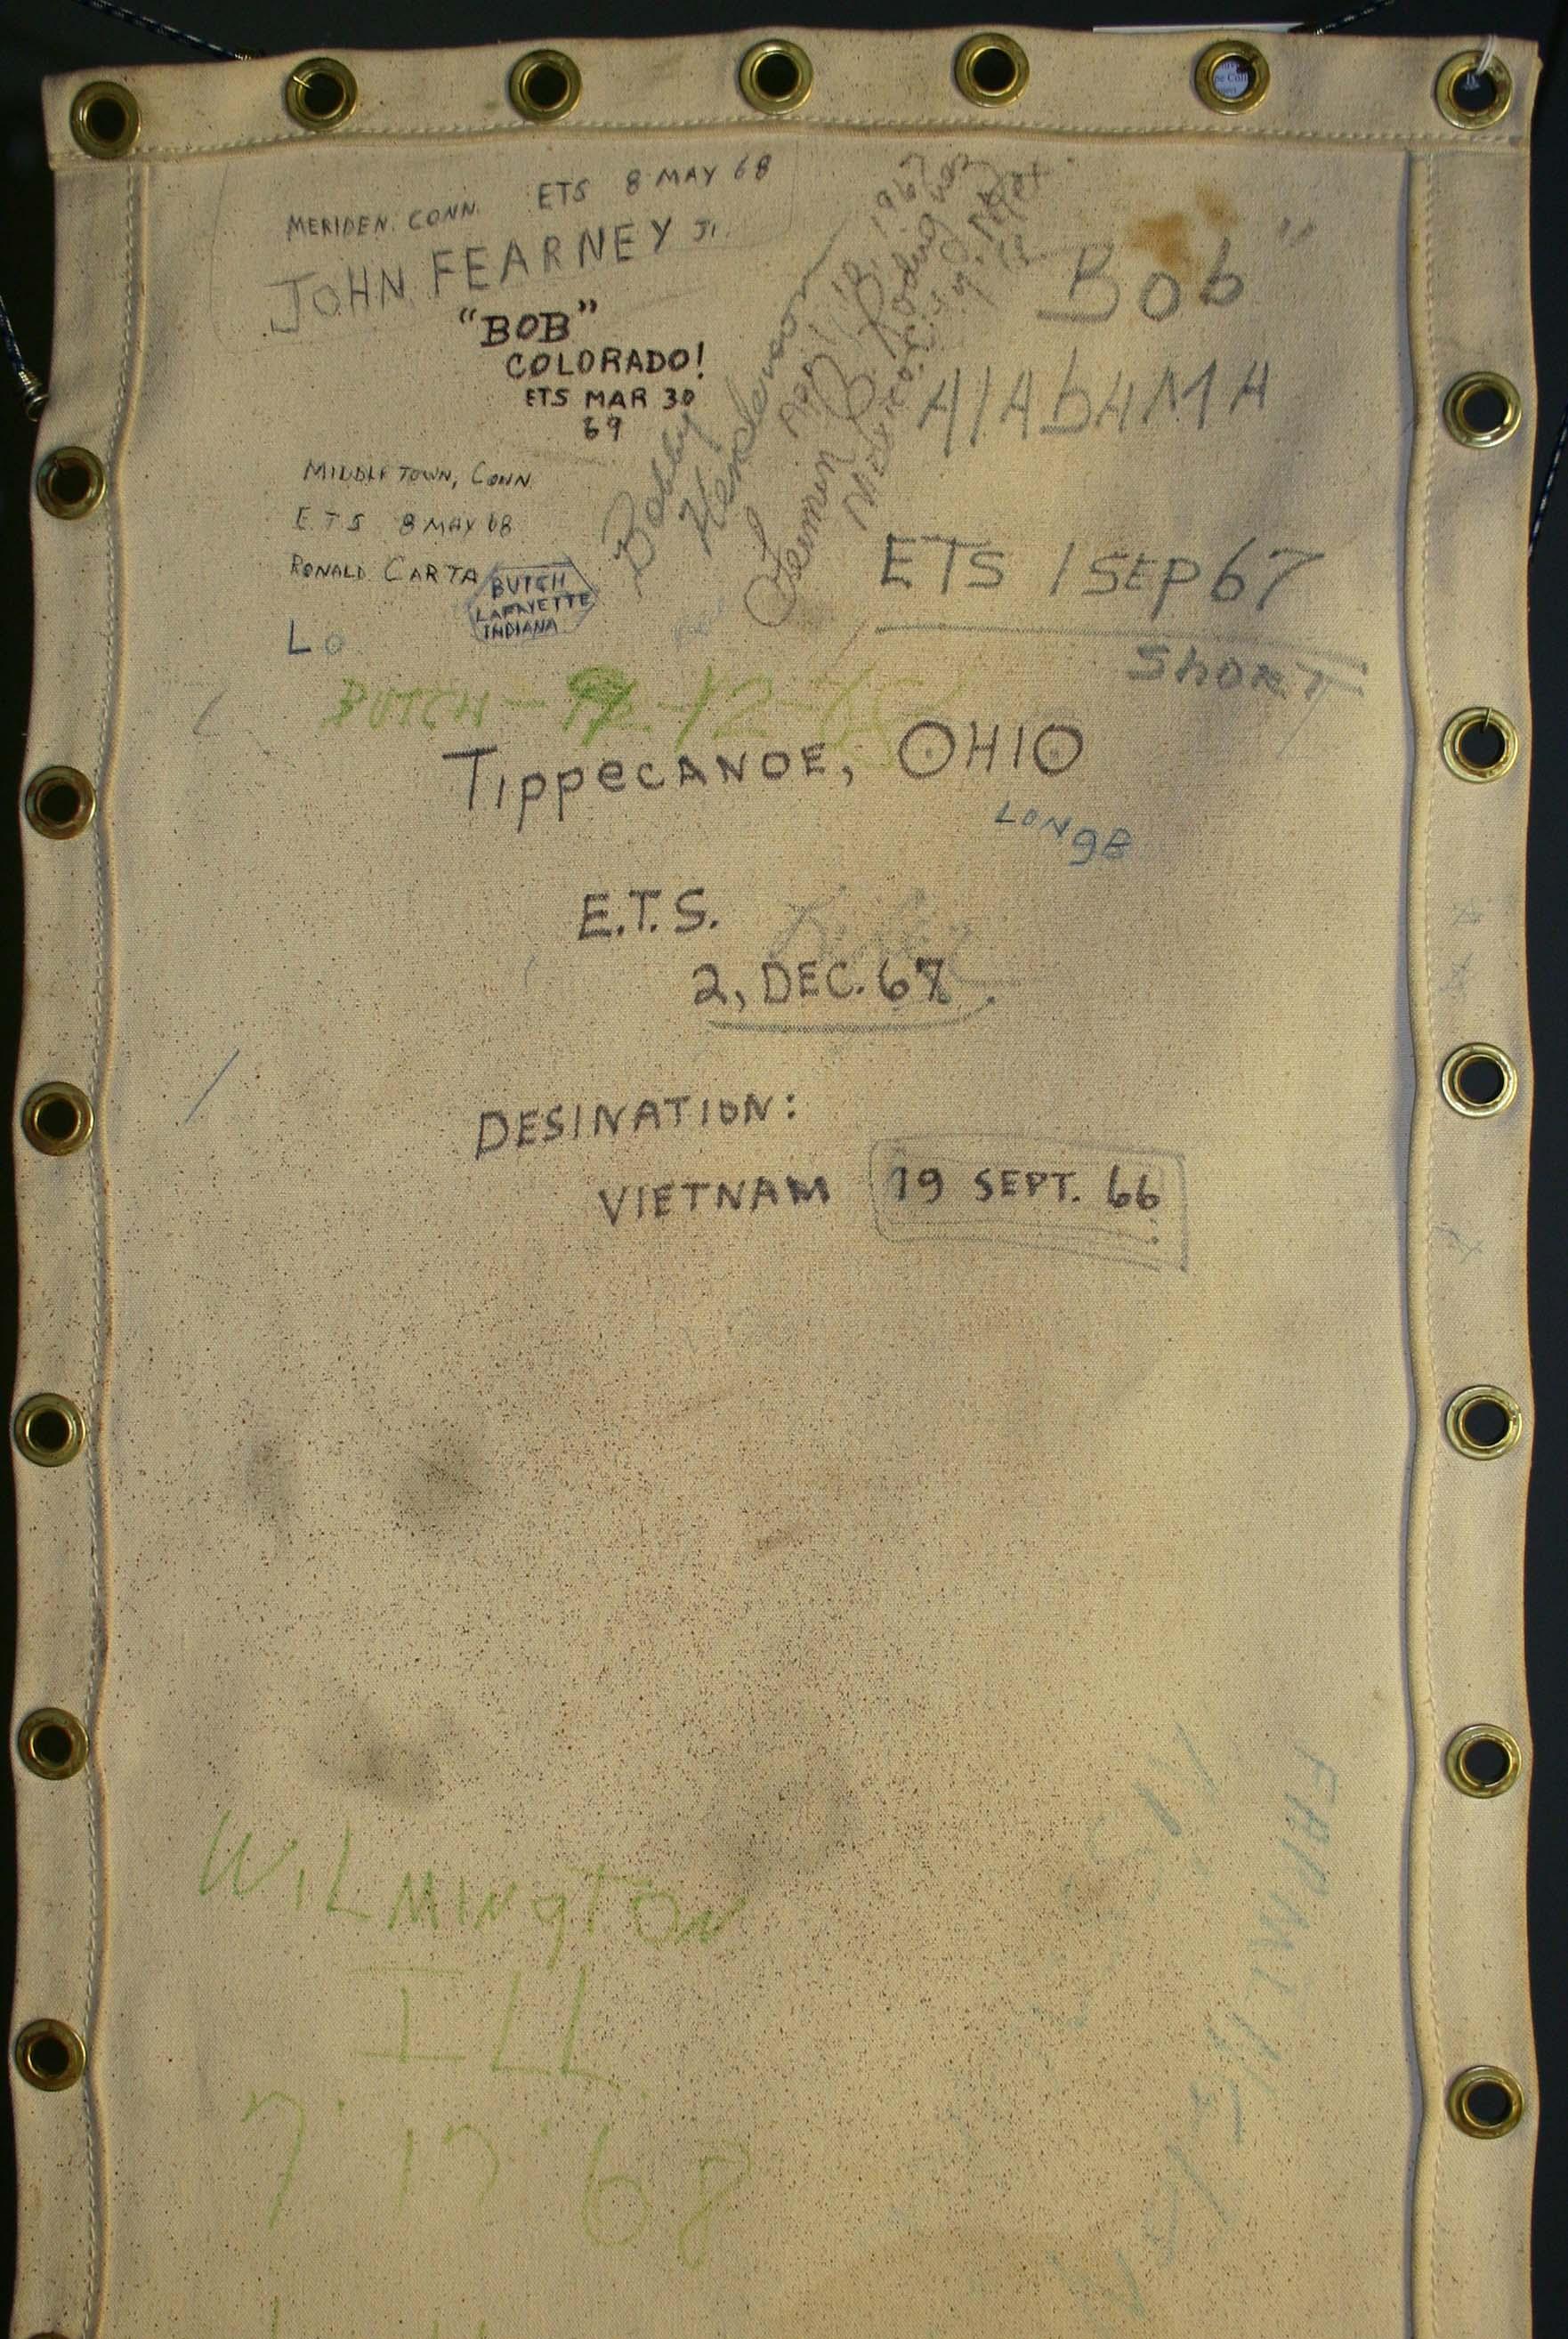 MERIDEN. CONN. ETS 8 MAY 68
JOHN FEARNEY
"BOB"
COLORADO!
ETS MAR 30
69
MIDDLETOWN, CONN
E.T.S 8 MAY 68
RONALD CARTA
BUTCH
LAFAYETTE
INDIANA
Lo
Bobby
Henderson
April 18, 1967
Fermin B. Rodriguez
Bob"
AlAbAMA
ETS 1 SEP 67
ShORT
BUTCH
TippeCANOE, OHIO
LONgE
E.T.S.
2, DEC. 67
DESINATION:
VIETNAM 19 SEPT. 66
WiLMINgTON
ILL
7. 17. 68